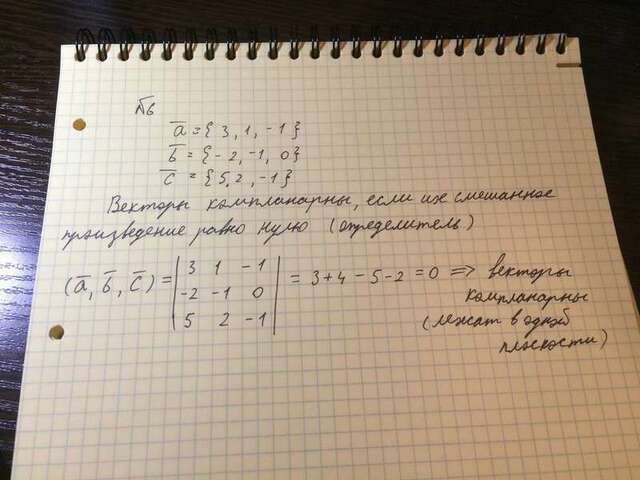 №6
a̅ = {3, 1, -1}
b̅ = {-2, -1, 0}
c̅ = {5, 2, -1}
Векторы компланарны, если их смешанное
произведение равно нулю (определитель)
(a̅, b̅, c̅) = | 3 1 -1 | = 3+4-5-2=0 => векторы
| -2 -1 0 | компланарны
| 5 2 -1 | (лежат в одной
плоскости)